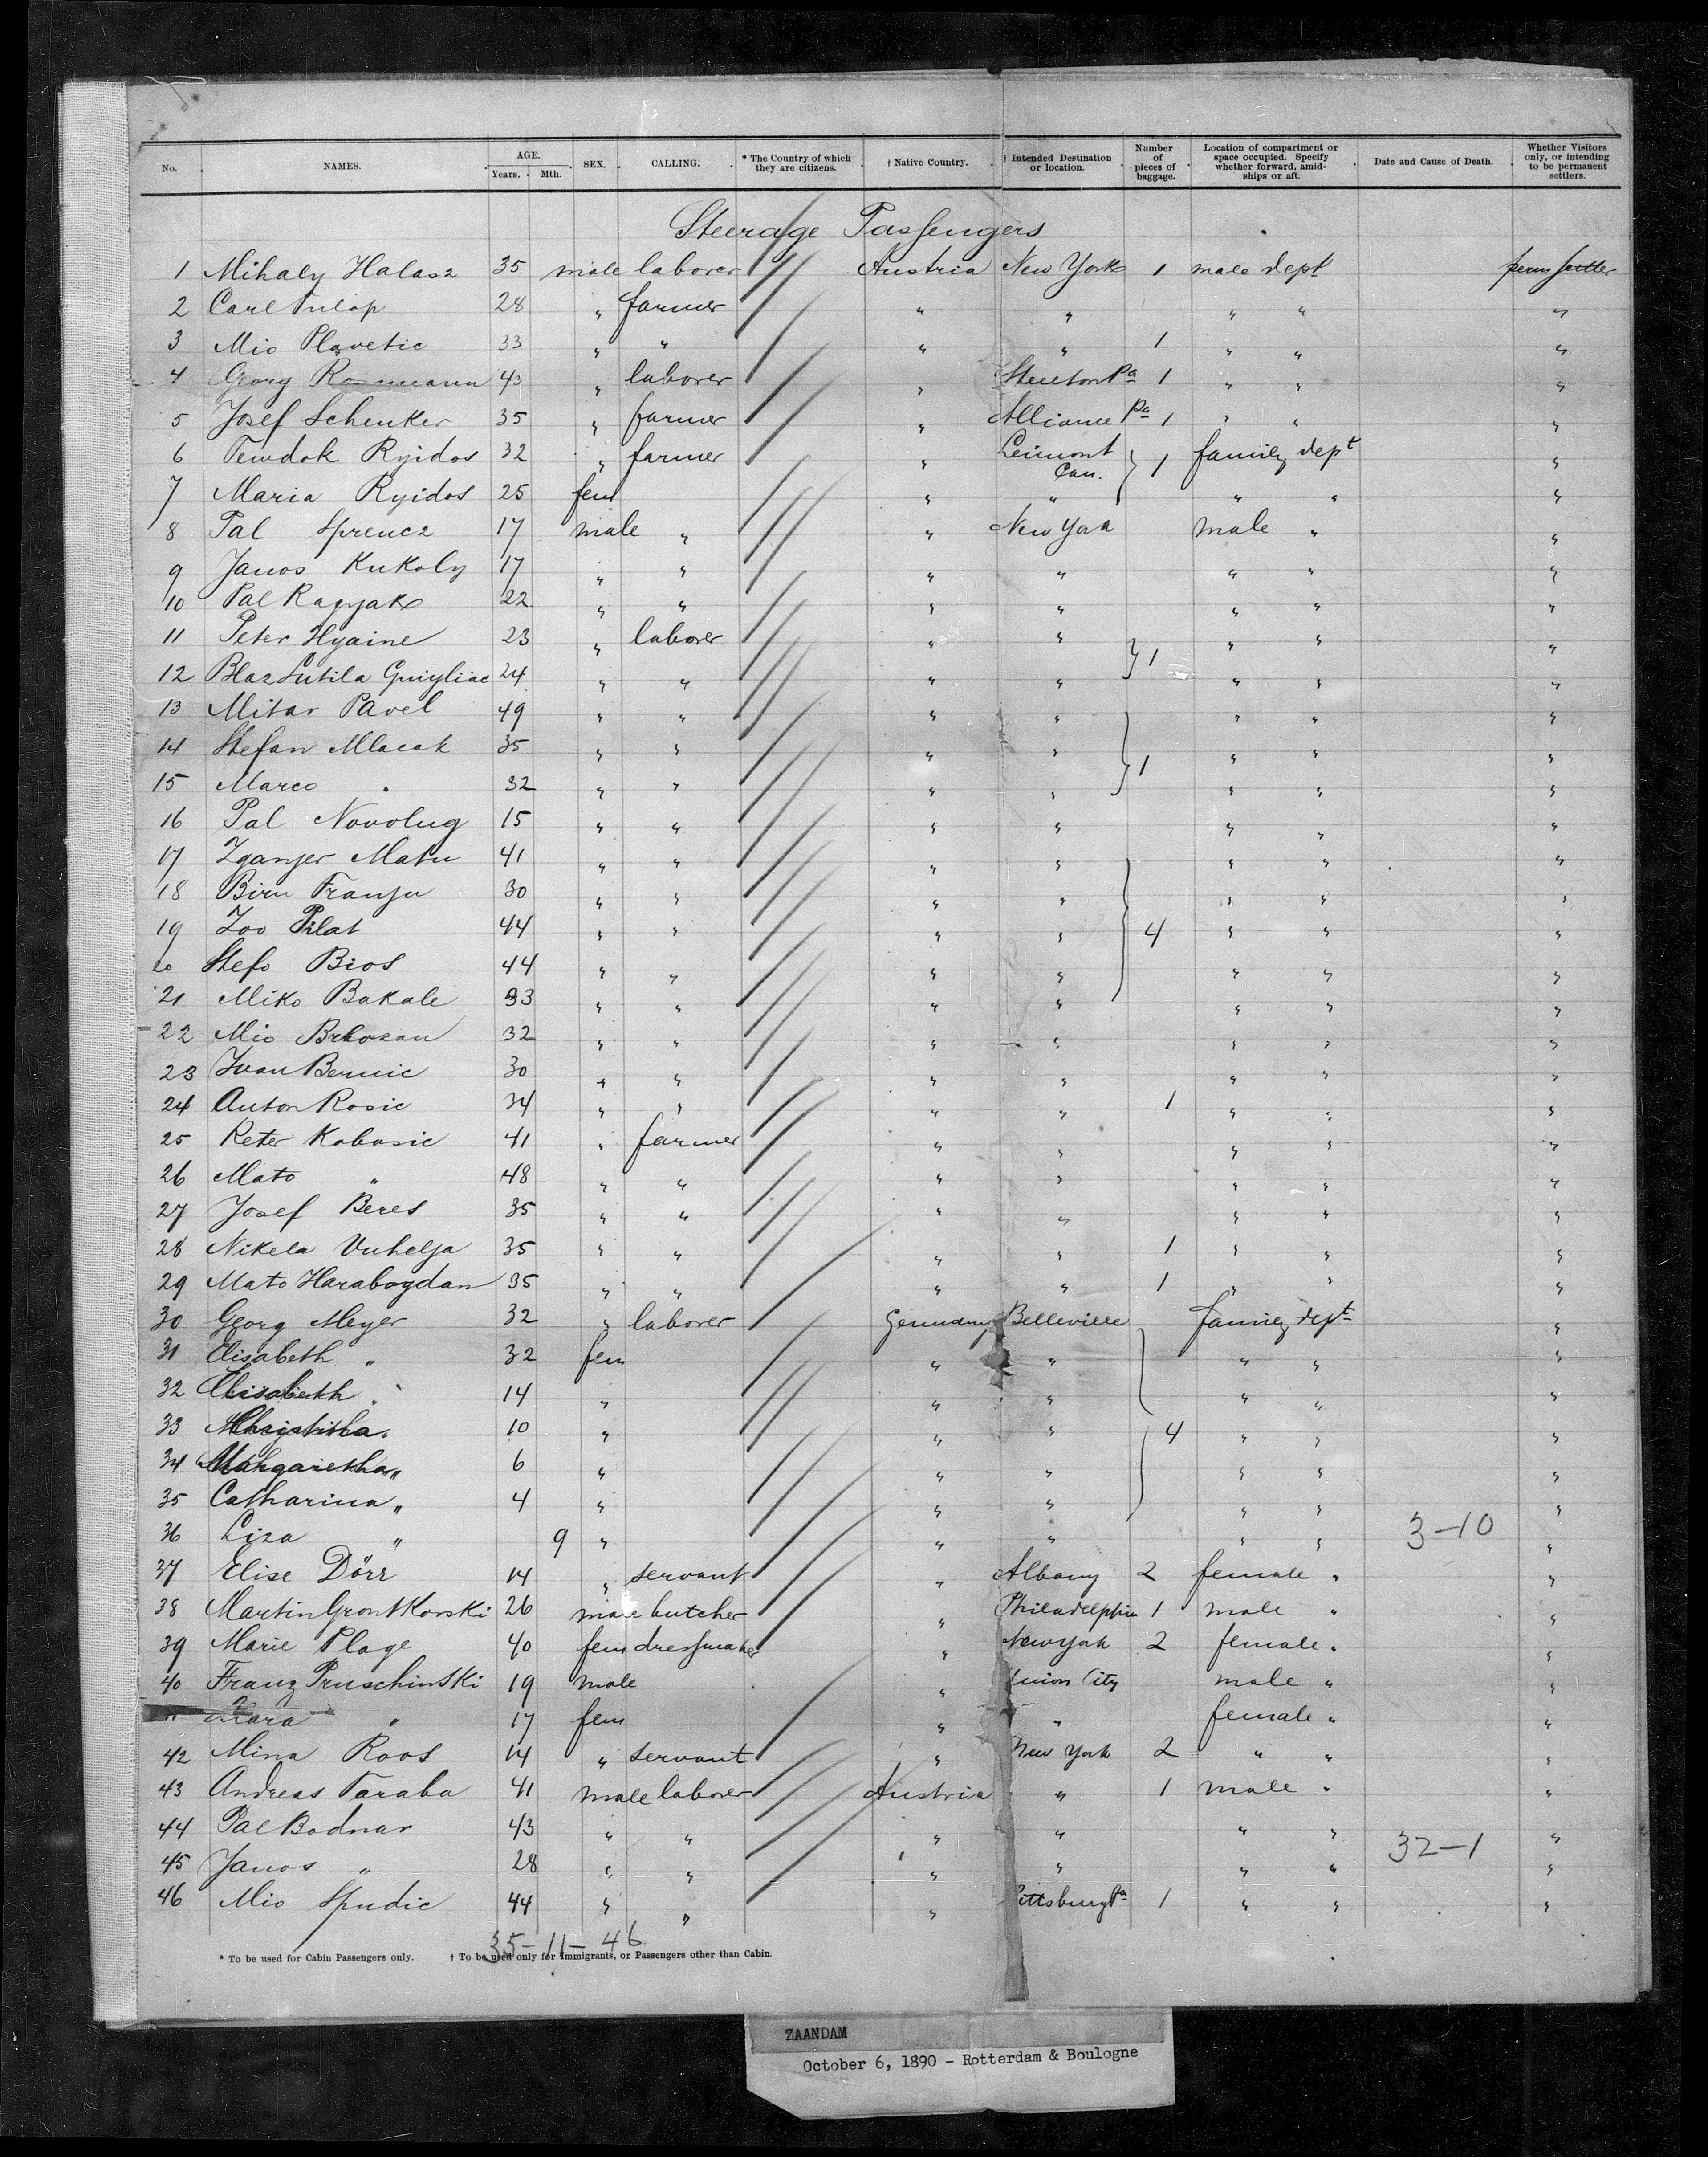 No. NAMES. AGE. Years. Mth. SEX. CALLING. * The Country of which they are citizens. † Native Country. † Intended Destination or location. Number of pieces of baggage. Location of compartment or space occupied. Specify whether forward, amidships or aft. Date and Cause of Death. Whether Visitors only, or intending to be permanent settlers.
Steerage Passengers
1 Mihaly Halasz 35 male laborer Austria New York 1 male dept perm settler
2 Carl 28 " farmer " " " " "
3 Mio Plavetic 33 " " " " 1 " " "
4 Georg 43 " laborer " Steelton Pa 1 " " "
5 Josef Schenker 35 " farmer " Alliance Pa 1 " " "
6 Ryidos 32 " farmer " Can. 1 family dept "
7 Maria Ryidos 25 fem " " " " "
8 Pal Sprencz 17 male " " New York male " "
9 Janos Kukoly 17 " " " " " " "
10 Pal Ragyak 22 " " " " " " "
11 Peter Hyaine 23 " laborer " " 1 " " "
12 Blaz 24 " " " " " " "
13 Mitar Pavel 49 " " " " " " "
14 Stefan Mlacak 35 " " " " 1 " " "
15 Marco " 32 " " " " " " "
16 Pal Novolug 15 " " " " " " "
17 Zganjer Matu 41 " " " " " " "
18 Biru Franju 30 " " " " " " "
19 Zoo Pilat 44 " " " " 4 " " "
20 Stefo Bios 44 " " " " " " "
21 Miko Bakale 33 " " " " " " "
22 Mio 32 " " " " " " "
23 Ivan Bernic 30 " " " " " " "
24 Anton Rosic 34 " " " " 1 " " "
25 Peter Kobasic 41 " farmer " " " " "
26 Mato " 48 " " " " " " "
27 Josef Beres 35 " " " " " " "
28 Nikela Vuhelja 35 " " " " 1 " " "
29 Mato Harabogdan 35 " " " " 1 " " "
30 Georg Meyer 32 " laborer Germany Belleville family dept "
31 Elisabeth " 32 fem " " " " "
32 Elisabeth " 14 " " " " " "
33 10 " " " 4 " " "
34 Margaretha " 6 " " " " " "
35 Catharina " 4 " " " " " "
36 Liza " 9 " " " " " 3-10 "
37 Elise Dörr 14 " servant " Albany 2 female " "
38 Martin Grontkowski 26 male butcher " Philadelphia 1 male " "
39 Marie Plage 40 fem dressmaker " New York 2 female " "
40 Franz Pruschinski 19 male " Union City male " "
" 17 fem " " female " "
42 Mina Roos 14 " servant " New York 2 " " "
43 Andreas Taraba 41 male laborer Austria " 1 male " "
44 Pal Bodnar 43 " " " " " " 32-1 "
45 Janos " 28 " " " " " " "
46 Mio Spudic 44 " " " Pittsburg Pa 1 " " "
35-11-46
* To be used for Cabin Passengers only. † To be used only for Immigrants, or Passengers other than Cabin.
ZAANDAM
October 6, 1890 - Rotterdam & Boulogne